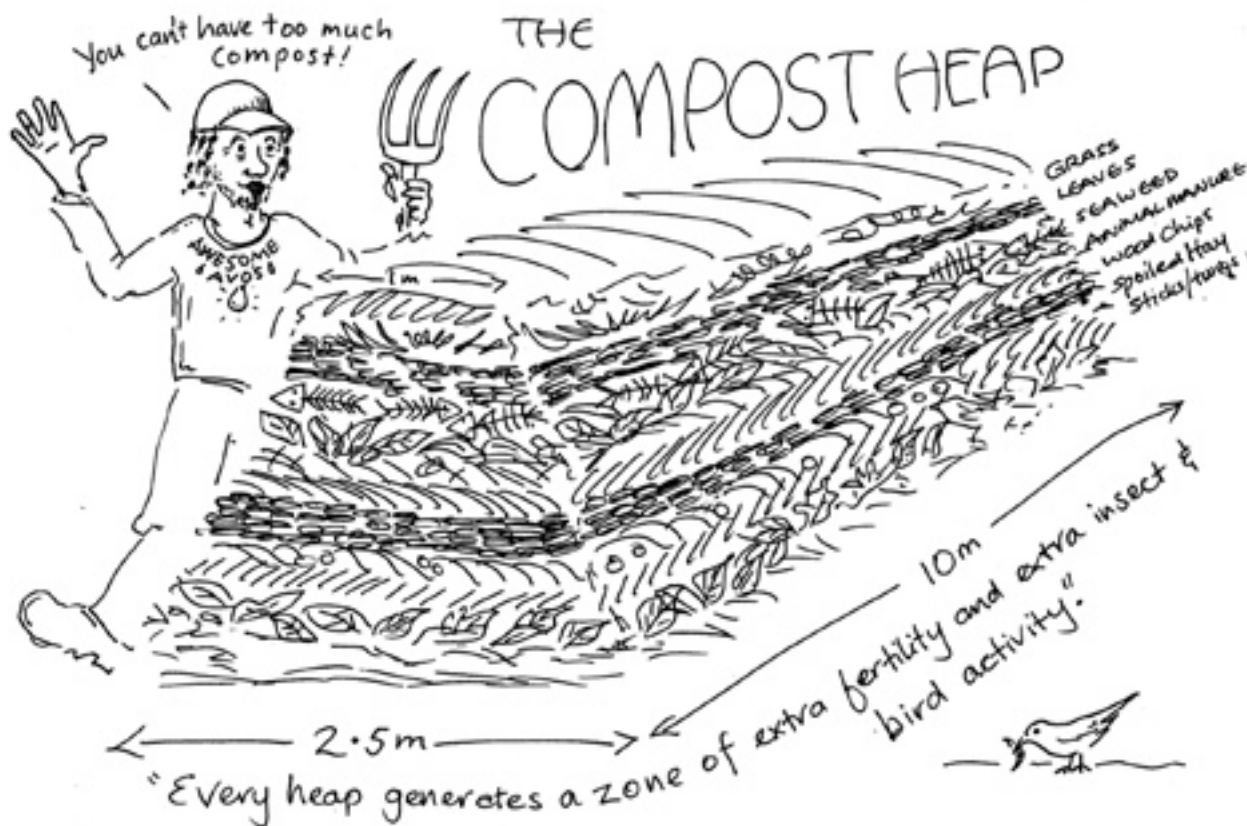 You can't have too much
compost!
THE
COMPOST HEAP
AWESOME
AVOS
1m
GRASS
LEAVES
SEAWEED
ANIMAL MANURE
wood chips
spoiled Hay
sticks/twigs
10m
2.5m
"Every heap generates a zone of extra fertility and extra insect &
bird activity."